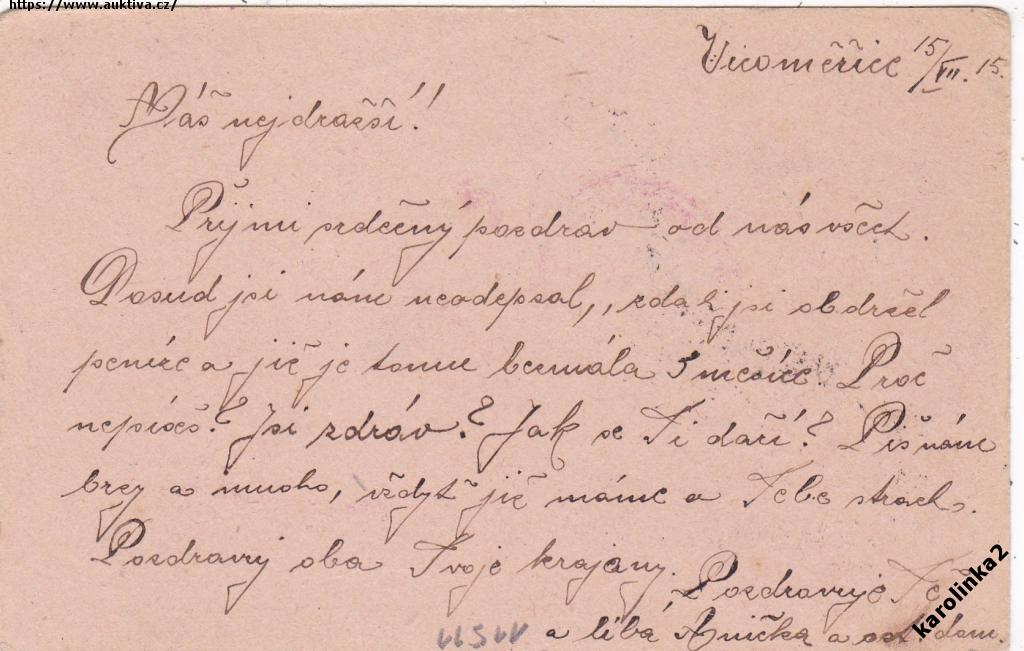 https://www.auktiva.cz/
Vicoměřice 15/VII. 15.
Náš nejdražší!
Přijmi srdečný pozdrav od nás všech.
Dosud jsi nám neodepsal, zdali jsi obdržel
peníze a již je tomu bezmála 5 měsíce. Proč
nepíšeš? Jsi zdráv? Jak se Ti daří? Piš nám
brzy a mnoho, vždyť již máme o Tebe strach.
Pozdravuj oba Tvoje krajany.
Pozdravuje Tě
a líbá Anička a ost. dom.
karolinka2